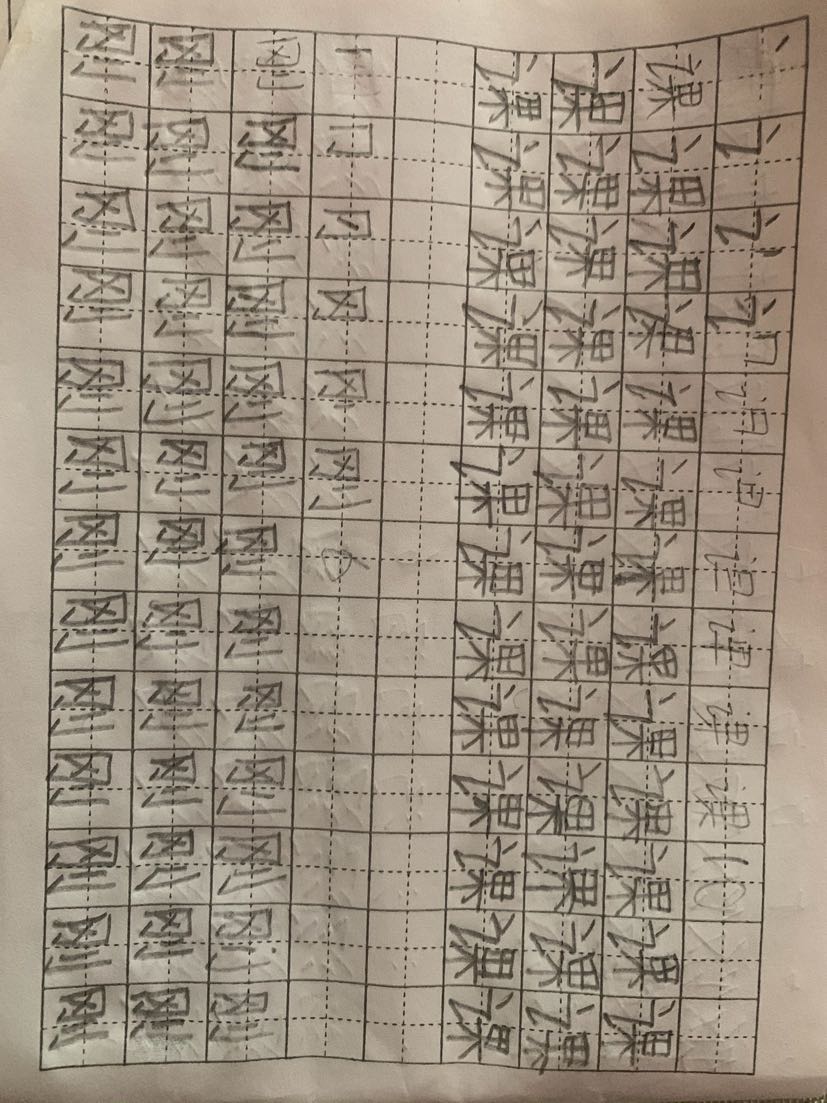 丶 讠 课 10
课 课 课 课 课 课 课 课 课 课 课 课 课
课 课 课 课 课 课 课 课 课 课 课 课 课
课 课 课 课 课 课 课 课 课 课 课 课 课
丨 冂 冈 刚 6
刚 刚 刚 刚 刚 刚 刚 刚 刚 刚 刚 刚 刚
刚 刚 刚 刚 刚 刚 刚 刚 刚 刚 刚 刚 刚
刚 刚 刚 刚 刚 刚 刚 刚 刚 刚 刚 刚 刚